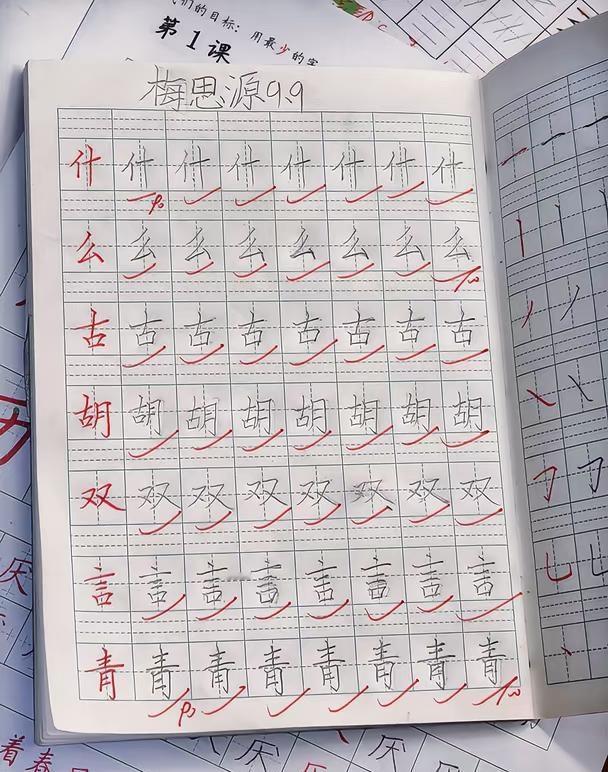 们的目标：用最少的字
第1课
梅思源9.9
什什什什什什什什
么么么么么么么么
古古古古古古古古
胡胡胡胡胡胡胡胡
双双双双双双双双
言言言言言言言言
青青青青青青青青
厌
着春
厌厌厌